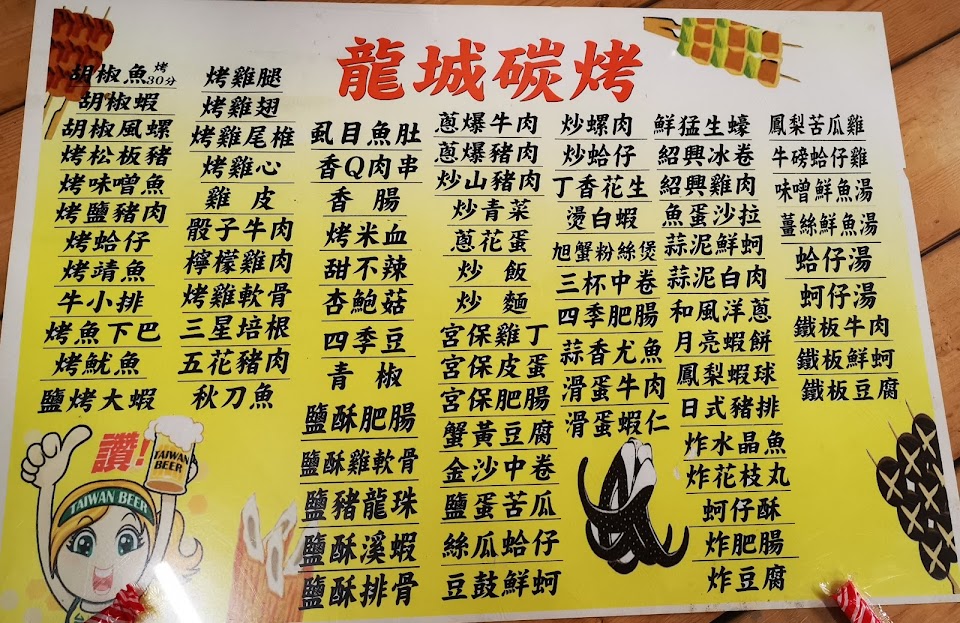 龍城碳烤
胡椒魚烤30分
胡椒蝦
胡椒風螺
烤松板豬
烤味噌魚
烤鹽豬肉
烤蛤仔
烤靖魚
牛小排
烤魚下巴
烤魷魚
鹽烤大蝦
烤雞腿
烤雞翅
烤雞尾椎
烤雞心
雞皮
骰子牛肉
檸檬雞肉
烤雞軟骨
三星培根
五花豬肉
秋刀魚
虱目魚肚
香Q肉串
香腸
烤米血
甜不辣
杏鮑菇
四季豆
青椒
鹽酥肥腸
鹽酥雞軟骨
鹽豬龍珠
鹽酥溪蝦
鹽酥排骨
蔥爆牛肉
蔥爆豬肉
炒山豬肉
炒青菜
蔥花蛋
炒飯
炒麵
宮保雞丁
宮保皮蛋
宮保肥腸
蟹黃豆腐
金沙中卷
鹽蛋苦瓜
絲瓜蛤仔
豆鼓鮮蚵
炒螺肉
炒蛤仔
丁香花生
燙白蝦
旭蟹粉絲煲
三杯中卷
四季肥腸
蒜香尤魚
滑蛋牛肉
滑蛋蝦仁
鮮猛生蠔
紹興冰卷
紹興雞肉
魚蛋沙拉
蒜泥鮮蚵
蒜泥白肉
和風洋蔥
月亮蝦餅
鳳梨蝦球
日式豬排
炸水晶魚
炸花枝丸
蚵仔酥
炸肥腸
炸豆腐
鳳梨苦瓜雞
牛磅蛤仔雞
味噌鮮魚湯
薑絲鮮魚湯
蛤仔湯
蚵仔湯
鐵板牛肉
鐵板鮮蚵
鐵板豆腐
讚!
TAIWAN
BEER
TAIWAN BEER